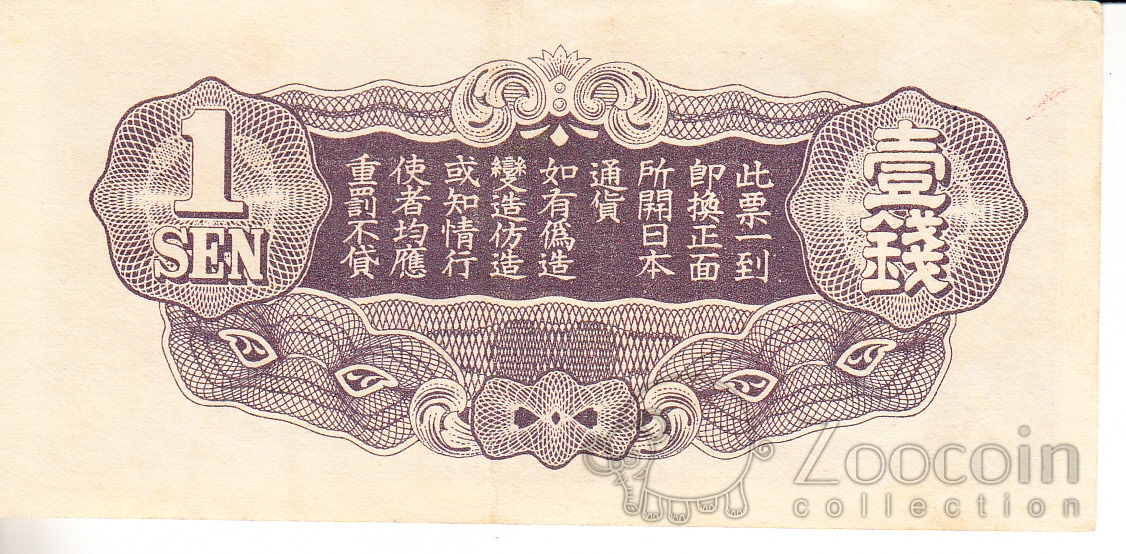 1
SEN
此票一到
即換正面
所開日本
通貨
如有偽造
變造仿造
或知情行
使者均應
重罰不貸
壹錢
Zoocoin
collection